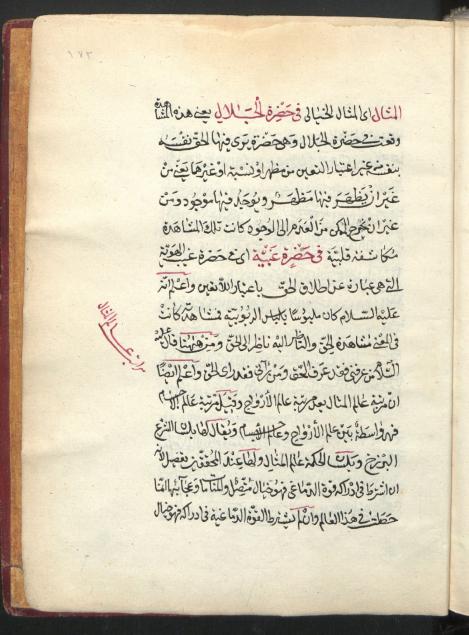 ١٧٣
المثال اى المثال الخيالى فى حضرة الجلال يعنى هذه المشاهدة
وقعت فى حضرة الجلال وهى حضرة يرى فيها الحق نفسه
بنفسه بغير اعتبار التعين من مظهر او نسبة او غيرها يعنى من
غير ان يظهر فيها مظهر ويوجد فيها موجود ومن
غير ان يخرج الممكن من العدم الى الوجود كانت تلك المشاهدة
مكاشفة قلبية فى حضرة غيبية اى فى حضرة غيب الهوية
التى هى عبارة عن اطلاق الحق باعتبار اللاتعين واعلم انه
عليه السلام كان ملبوسا بلباس الربوبية فمشاهدته كانت
فى الحقيقة مشاهدة الحق والناظر اليه ناظر الى الحق ومن ههنا قال عليه
السلام من عرفنى فقد عرف الحق ومن رآنى فقد راى الحق واعلم ايضا
ان مرتبة عالم المثال بعد مرتبة عالم الارواح وقبل مرتبة عالم الاجسام
فهو واسطة بين عالم الارواح وعالم الاجسام ويقال لها بلسان الشرع
البرزخ وبلسان الحكمة عالم المثال ولها عند المحققين تفصيل لانه
ان اشترط فى ادراكه قوة الدماغى فهو خيال متصل وعجايبها
فى هذا العالم وان لم يشترط القوة الدماغية فى ادراكه فهو خيال
مراتب عالم المثال